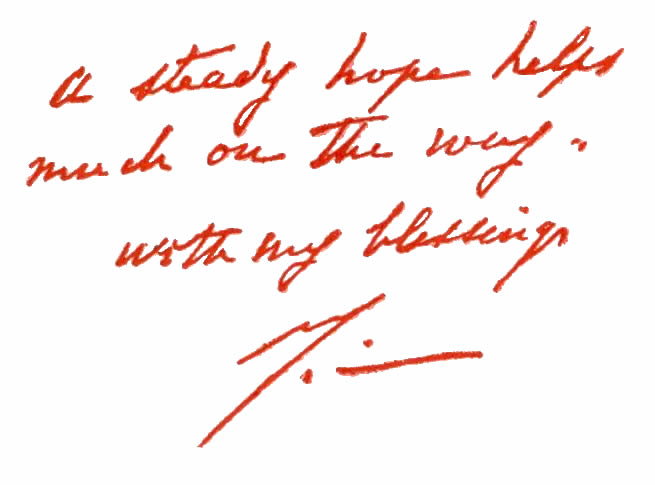 a steady hope helps
much on the way.
with my blessings